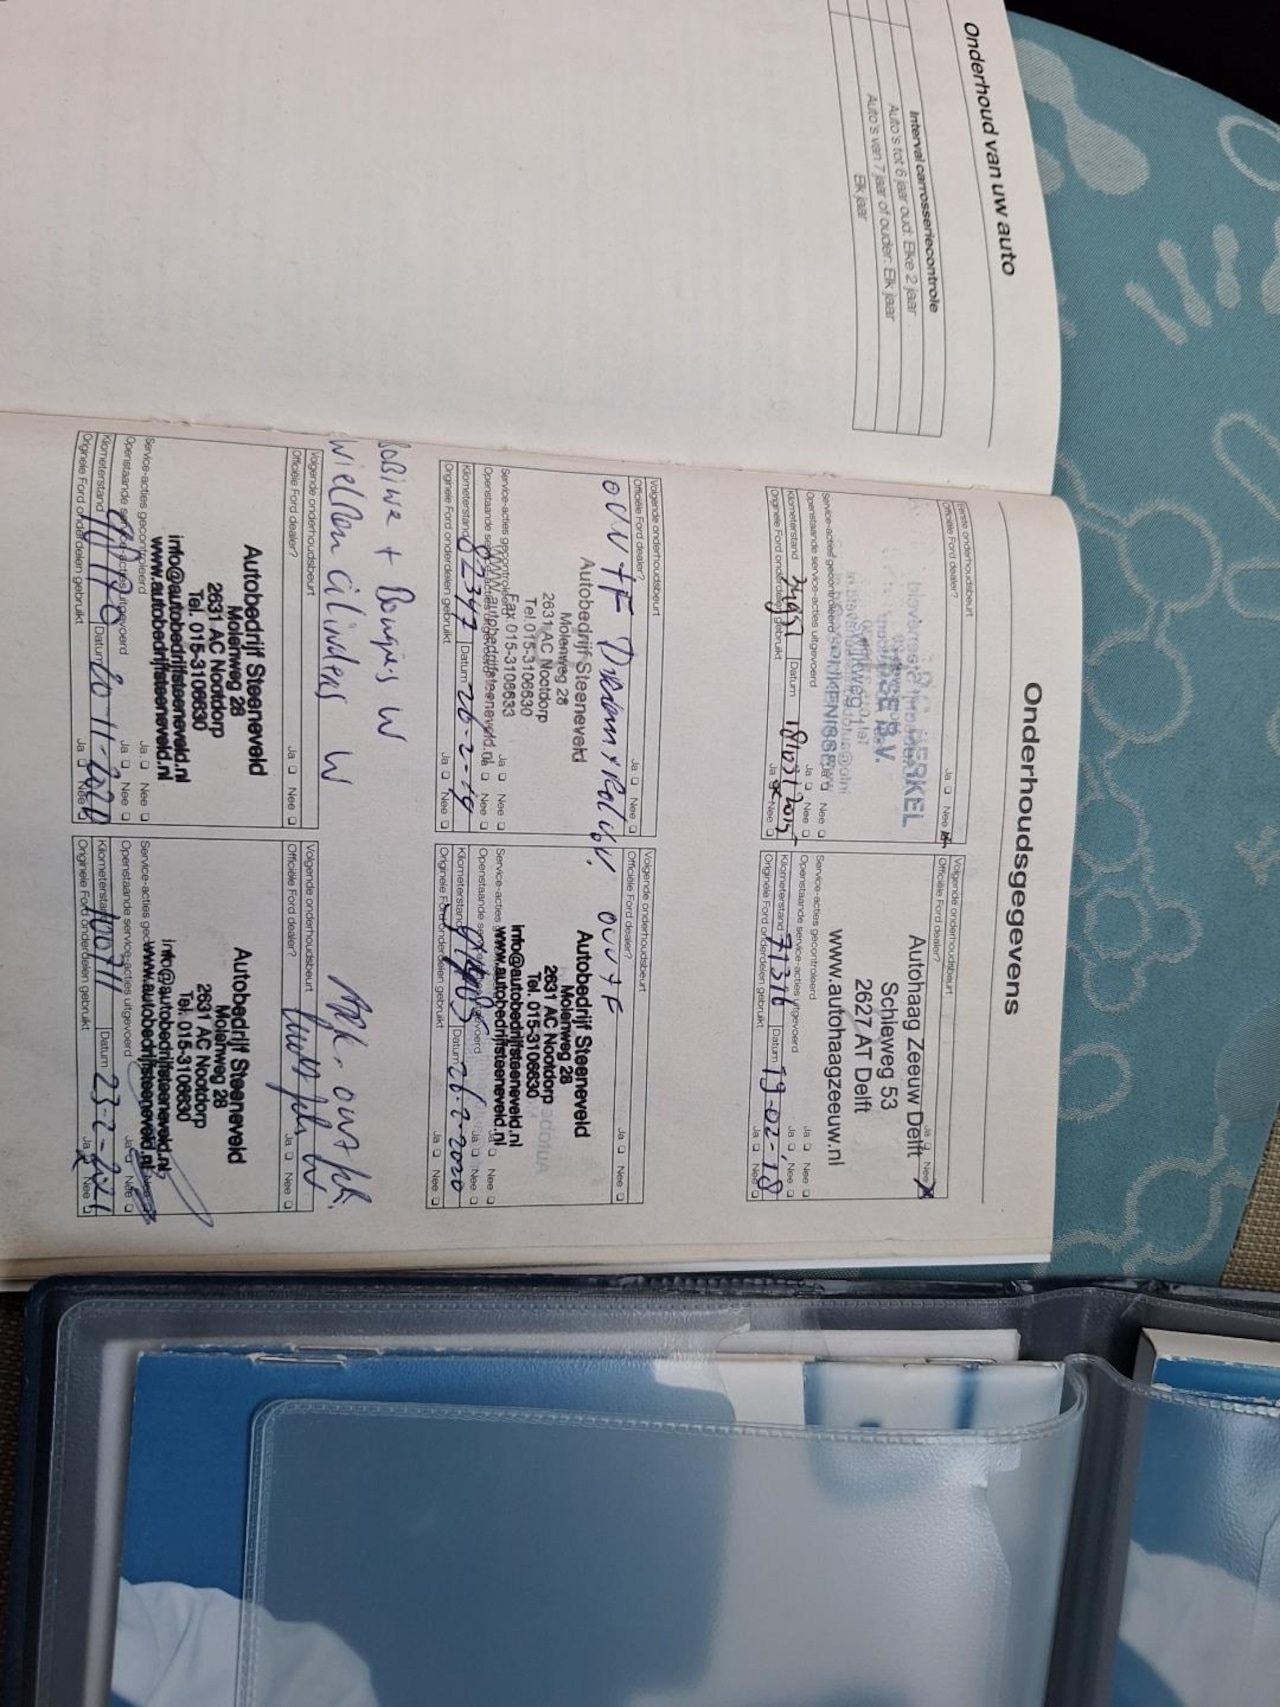 Onderhoud van uw auto
Interval carrosseriecontrole
Auto's tot 6 jaar oud: Elke 2 jaar
Auto's van 7 jaar of ouder: Elk jaar
Elk jaar
Onderhoudsgegevens
Eerste onderhoudsbeurt
Officiële Ford dealer? Ja Nee
Service-acties gecontroleerd Ja Nee
Openstaande service-acties uitgevoerd Ja Nee
Kilometerstand Datum
Originele Ford onderdelen gebruikt Ja Nee
Volgende onderhoudsbeurt
Officiële Ford dealer? Ja Nee X
Autohaag Zeeuw Delft
Schieweg 53
2627 AT Delft
www.autohaagzeeuw.nl
Service-acties gecontroleerd Ja Nee
Openstaande service-acties uitgevoerd Ja Nee
Kilometerstand 71316 Datum 19-02-'18
Originele Ford onderdelen gebruikt Ja Nee
Volgende onderhoudsbeurt
Officiële Ford dealer? Ja Nee
Autobedrijf Steeneveld
Molenweg 28
2631 AC Nootdorp
Tel 015-3106630
Fax 015-3106633
www.autobedrijfsteeneveld.nl
Service-acties gecontroleerd Ja Nee
Openstaande service-acties uitgevoerd Ja Nee
Kilometerstand 82347 Datum 26-2-19
Originele Ford onderdelen gebruikt Ja Nee
Volgende onderhoudsbeurt
Officiële Ford dealer? Ja Nee
Autobedrijf Steeneveld
Molenweg 28
2631 AC Nootdorp
Tel. 015-3106630
info@autobedrijfsteeneveld.nl
www.autobedrijfsteeneveld.nl
Service-acties Ja Nee
Openstaande Ja Nee
Kilometerstand Datum 26-2-2020
Originele Ford onderdelen gebruikt Ja Nee
Bobine + Bougies W
Wielrem cilinders W
Volgende onderhoudsbeurt
Officiële Ford dealer? Ja Nee
Autobedrijf Steeneveld
Molenweg 28
2631 AC Nootdorp
Tel. 015-3106630
info@autobedrijfsteeneveld.nl
www.autobedrijfsteeneveld.nl
Service-acties gecontroleerd Ja Nee
Openstaande service-acties uitgevoerd Ja Nee
Kilometerstand Datum 20-11-2020
Originele Ford onderdelen gebruikt Ja Nee
Volgende onderhoudsbeurt
Officiële Ford dealer? Ja Nee
Autobedrijf Steeneveld
Molenweg 28
2631 AC Nootdorp
Tel. 015-3106630
info@autobedrijfsteeneveld.nl
www.autobedrijfsteeneveld.nl
Service-acties
Openstaande service-acties uitgevoerd Ja Nee
Kilometerstand 100711 Datum 23-2-2021
Originele Ford onderdelen gebruikt Ja Nee